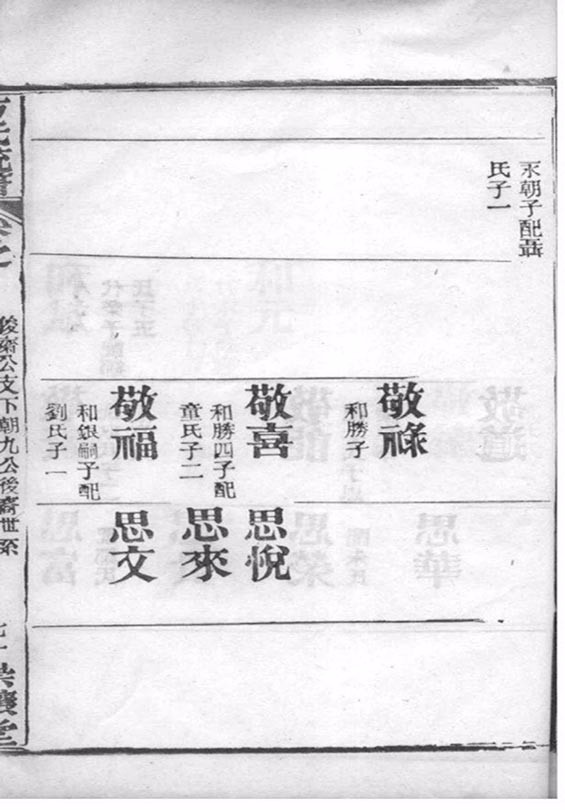 永朝子配聶
氏子一
敬祿
和勝子
敬喜
和勝四子配
童氏子二
敬福
和銀嗣子配
劉氏子一
思悅
思來
思文
俊齋公支下朝九公後裔世系